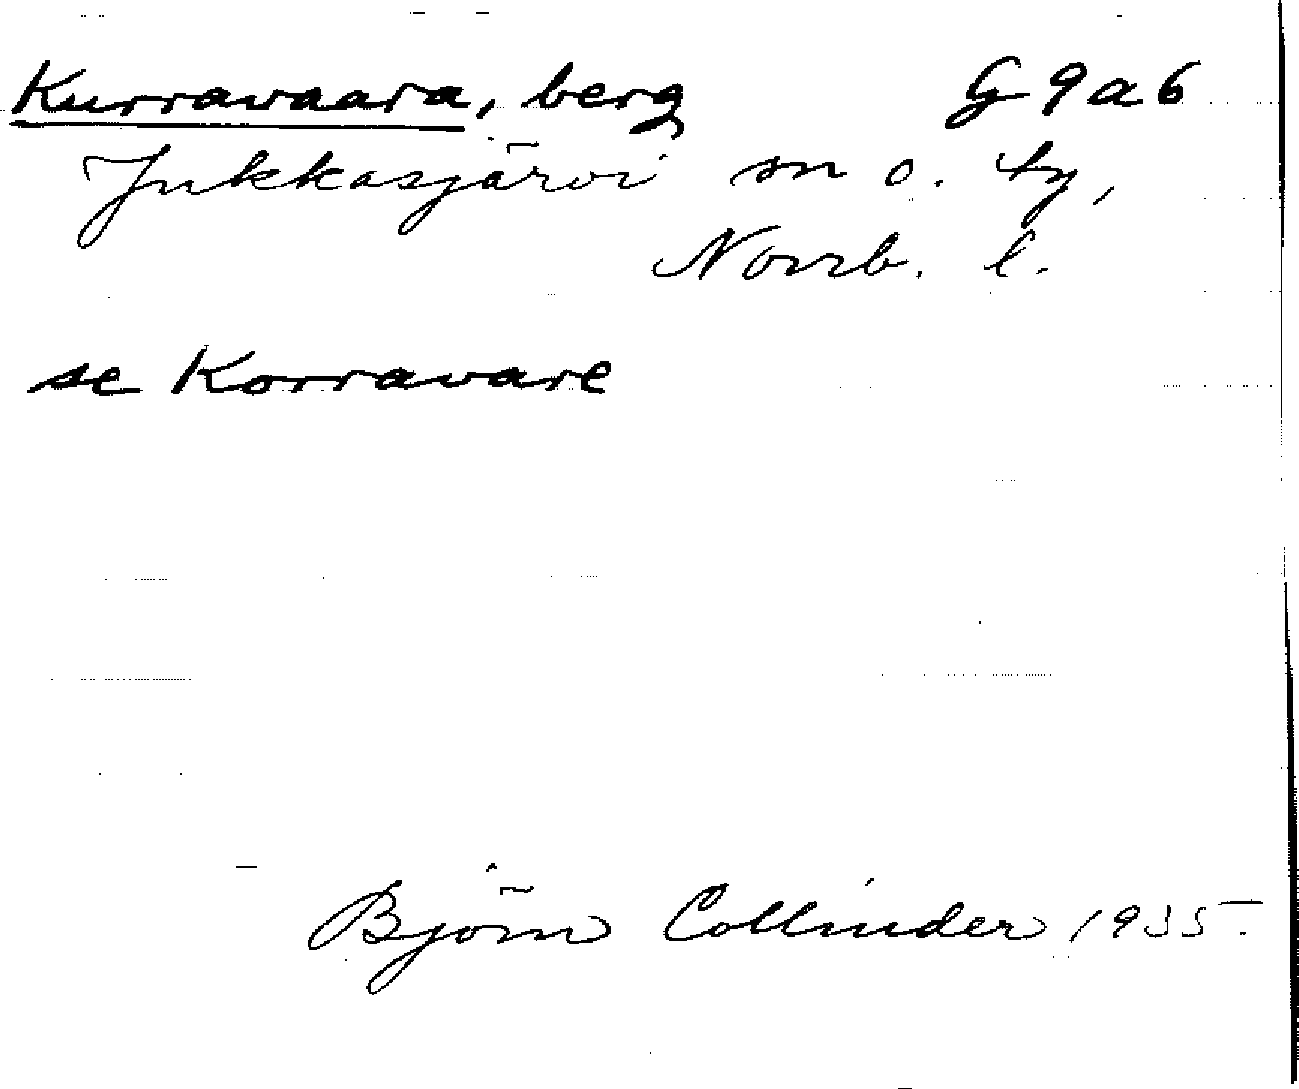 Kurravaara, berg G 9 a 6
Jukkasjärvi sn o. ty,
Norrb. l.
se Korravare
Björn Collinder 1935.